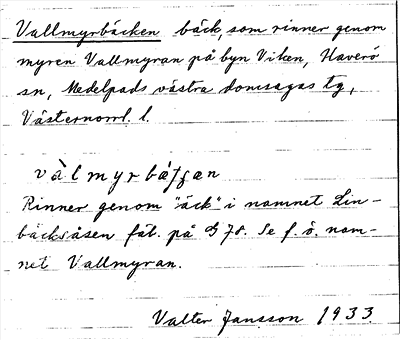 Vallmyrbäcken bäck, som rinner genom
myren Vallmyran på byn Viken, Haverö
sn, Medelpads västra domsagas tg,
Västernorrl. l.
vàlmyrbäʃʃan
Rinner genom "äck" i namnet Lin-
bäcksåsen fäb. på G 78. Se f. ö. nam-
net Vallmyran.
Valter Jansson 1933